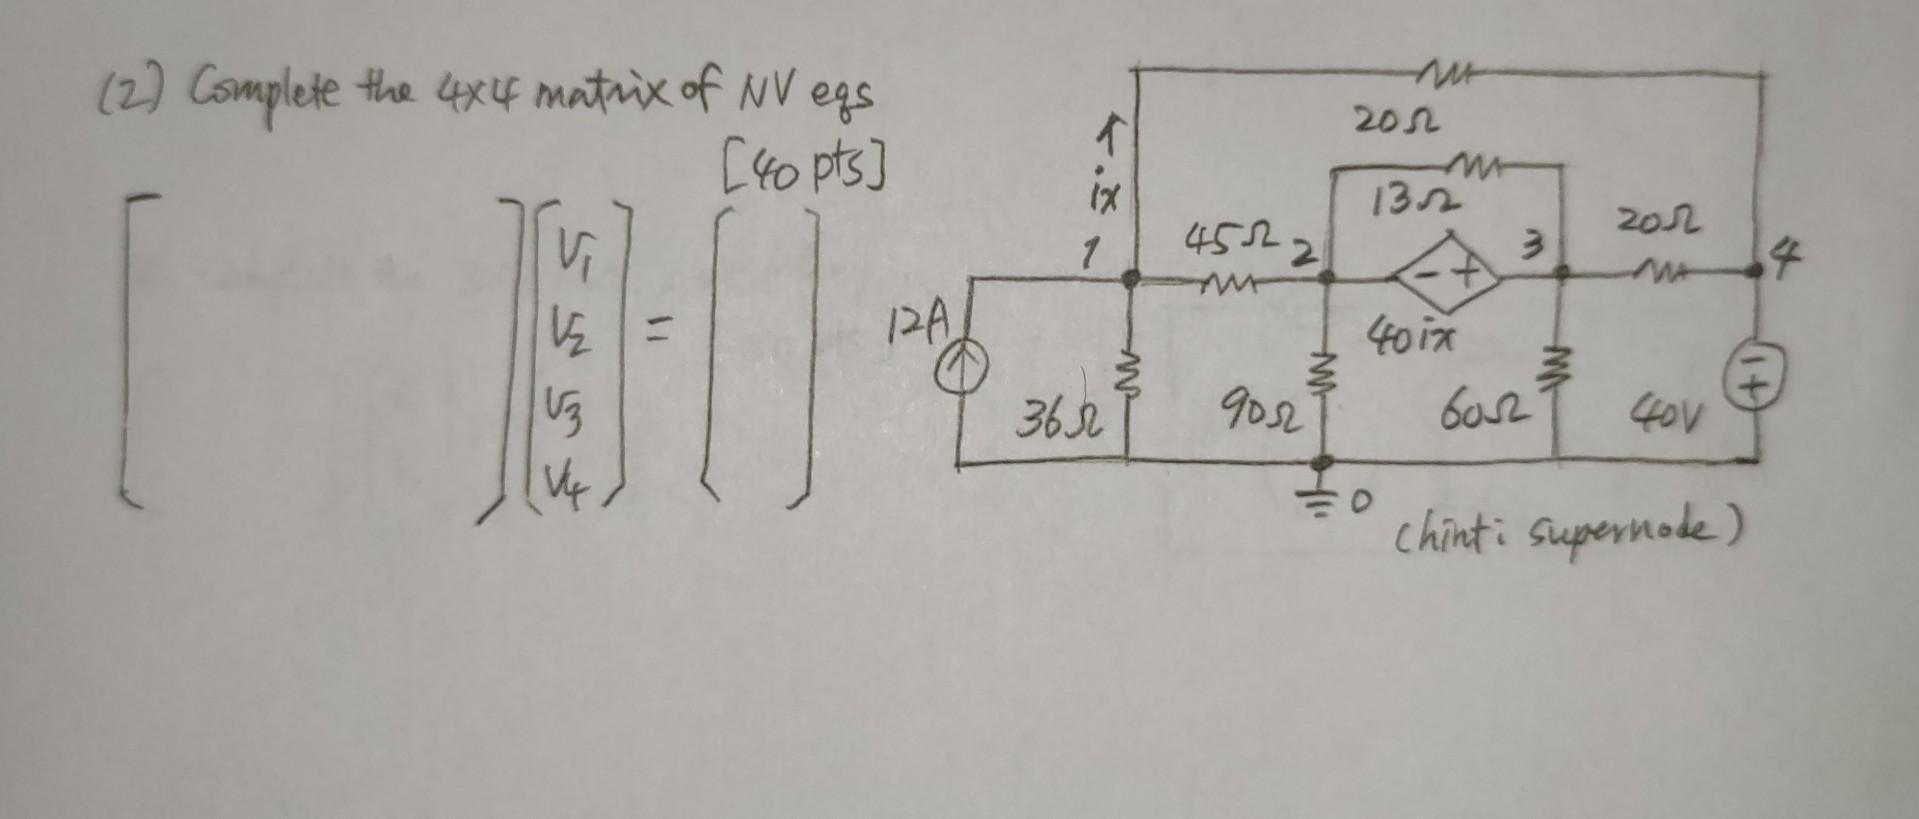 (2) Complete the 4x4 matrix of NV eqs
[40 pts]
V1
V2
V3
V4
=
20Ω
ix
13Ω
1
45Ω
2
3
20Ω
4
- +
12A
40ix
36Ω
90Ω
60Ω
40V
-
+
0
(hint: supernode)